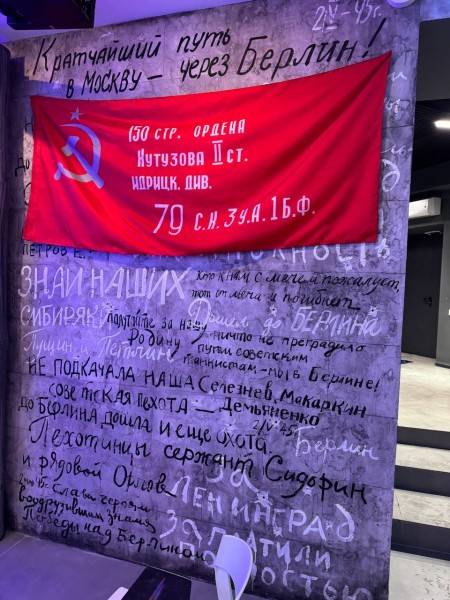 2/V-45г.
Кратчайший путь
в Москву — через Берлин!
150 СТР. ОРДЕНА
КУТУЗОВА II СТ.
ИДРИЦК. ДИВ.
79 С.К. 3 У.А. 1 Б.Ф.
ПЕТРОВ Е.
ЗНАЙ НАШИХ
СИБИРЯК
Пушин и Петлин
кто к нам с мечем пожалует,
тот от меча и погибнет
Дошел до БЕРЛИНА
получайте за нашу
Родину
ничто не преградило
пути советским
танкистам - мы в Берлине!
НЕ ПОДКАЧАЛА НАША Селезнев, Макаркин
советская пехота — Демьяненко
2/V 45г
до Берлина дошла и еще охота
Берлин
Пехотинцы сержант Сидорин
и рядовой Орлов
Слава героям
водрузившим знамя
Победы над Берлином
За
ЛЕНИНГРАД
ЗАПЛАТИЛИ
ПОЛНОСТЬЮ